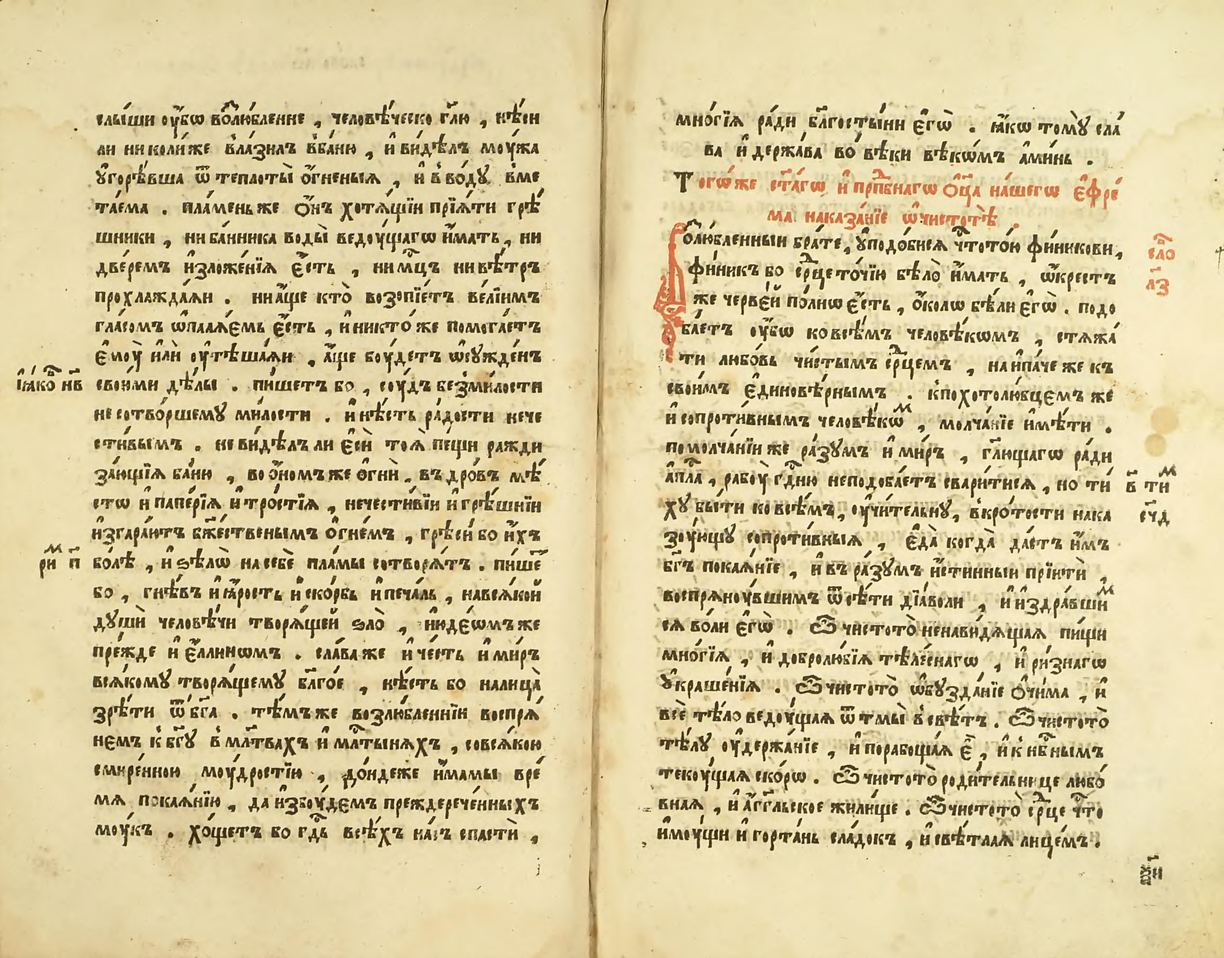 слы́ши ᲂу҆́бѡ во̑любление , человѣ́ческо гл҃ю , нѣ́си
ли николи́же вла́зилъ вба́ню , и҆ ви́дѣлъ мо́ужа
ᲂу҆горѣ́вша ѿ теплоты̀ о҆́гненыѧ , и҆ в во́дꙋ вме
та́ема . пла́меньже ѻ҆́нъ хотѧ́щїи прїѧ́ти грѣ́
шники , ни ба́нника воды̀ ведо́ущагѡ и҆́мать , ни
две́ремъ и҆зложе́нїѧ є҆́сть , ни мц҃ъ ни вѣ́тръ
прохлажда́ѧи . ни а҆́ще кто̀ возопїе́тъ ве́лїимъ
гла́сомъ ѡ҆плалѧ́емь є҆́сть , и҆ никто́же помога́етъ
є҆моу̀ и҆лѝ оу҆тѣша́ѧи , а҆́ще боу́детъ ѡ҆суж́де́нъ
і҆а҆́ко нв
свои́ми дѣ́лы . пи́шетъ бо , со́удъ без̾ми́лости
не сотво́ршемꙋ ми́лости . и҆ нѣ́сть ра́дости нече
сти́вымъ . не ви́дѣлъ ли є҆сѝ тоѧ̀ пе́щи ражди
за́ющїѧ ба́ню , во ѻ҆́номъже ѻ҆гнѝ . въ дро́въ мѣ́
сто и҆ папе́рїѧ и҆ тро́стїѧ , нечести́вїи и҆ грѣ́шнїи
и҆згара́ютъ бж҃е́ственымъ ѻ҆гне́мъ , грѣсѝ бо и҆́хъ
ри п
бо́лѣ , и҆ ѕѣлѡ̀ на себѐ пла́мы сотворѧ́тъ . пи́ше
бо , гнѣ́въ и҆ ꙗ҆́рость и҆ ско́рбь и҆ печа́ль , на всѧ́кой
дꙋшѝ человѣ́чи творѧ́щей ѕло̀ , и҆юде́ѡмъже
пре́жде и҆ є҆́ллинѡмъ . сла́важе и҆ че́сть и҆ ми́ръ
всѧ́комꙋ творѧ́щемꙋ благо́е , нѣ́сть бо на лица̀
зрѣ́ти ѿ бг҃а . тѣ́мъже возлю́бленнїи воспрѧ
не́мъ к бг҃ꙋ в мл҃твахъ и҆ мл҃тынѧхъ , со всѧ́кою
смире́нною моу́дростїю , до́ндеже и҆́мамы вре́
мѧ покаѧ́нїю , да и҆збо́удемъ преждерече́нныхъ
моу́къ . хо́щетъ бо гд҃ь всѣ́хъ на́съ спастѝ ,
мно́гїѧ ра́ди бл҃госты́ни є҆гѡ̀ . ꙗ҆́кѡ томꙋ̀ сла́
ва и҆ держа́ва во вѣ́ки вѣкѡ́мъ а҆ми́нь .
Того́же ст҃а́гѡ и҆ прпⷣбнагѡ ѻ҆ц҃а̀ на́шегѡ є҆фре́
ма наказа́нїе ѡ҆ чистотѣ̀ .
Возлю́бленныи бра́те , ᲂу҆подо́бисѧ чтⷭ҇тото́ю фи́никови ,
сло
лз
фи́никъ бо ср҃це то́чїю бѣло̀ и҆́мать , ѡ҆́крестъ
же черве́й по́лнѡ є҆́сть , ѻ҆́колѡ бѣли́ є҆гѡ̀ . подо
ба́етъ оу҆́бѡ ко всѣ́мъ человѣ́кѡмъ , стѧжа́
ти любо́вь чи́стымъ ср҃цемъ , наи́паче же къ
свои́мъ є҆диновѣ́рнымъ . к похотолю́бцемъ же
и҆ сопроти́внымъ человѣ́кѡⷨ , молча́нїе и҆мѣ́ти .
по молча́нїи же ра́зꙋмъ и҆ ми́ръ , гл҃ющагѡ ра́ди
а҆пл҃а , рабо́у гд҃ню не подоба́етъ сва́ритисѧ , но ти́
в тиⷨ
хꙋ бы́ти ко всѣ́мъ , оу҆чи́тельнꙋ , в кро́тости нака
сч҃д
зо́ующꙋ сопроти́вныѧ , є҆да̀ когда̀ да́стъ и҆́мъ
бг҃ъ покаѧ́нїе , и҆ въ ра́зꙋмъ и҆́стинныи прїитѝ ,
воспрѧно́увшимъ ѿ сѣ́ти дїа́воли , и҆ и҆здра́вшиⷨ
сѧ во́ли є҆гѡ̀ . Ѽ чистото̀ ненави́дѧщаѧ пи́щи
мно́гїѧ , и҆ добролю́бїѧ тѣле́снагѡ , и҆ ри́знагѡ
ᲂу҆краше́нїѧ . Ѽ чистото̀ ѡ҆бꙋзда́нїе ѻ҆чи́ма , и҆
всѐ тѣ́ло ведо́ущаѧ ѿ тмы̀ в свѣ́тъ . Ѽ чистото̀
тѣ́лꙋ оу҆держа́нїе , и҆ порабо́щаѧ є҆̀ , и҆ к нб҃нымъ
теко́ущаѧ ско́рѡ . Ѽ чистото̀ роди́тельнице любо́
внаѧ , и҆ а҆́гг҃льское жили́ще . Ѽ чистото̀ ср҃це чⷭ҇то
и҆мо́ущи и҆ горта́нь сла́докъ , и҆ свѣ́тлаѧ лице́мъ .